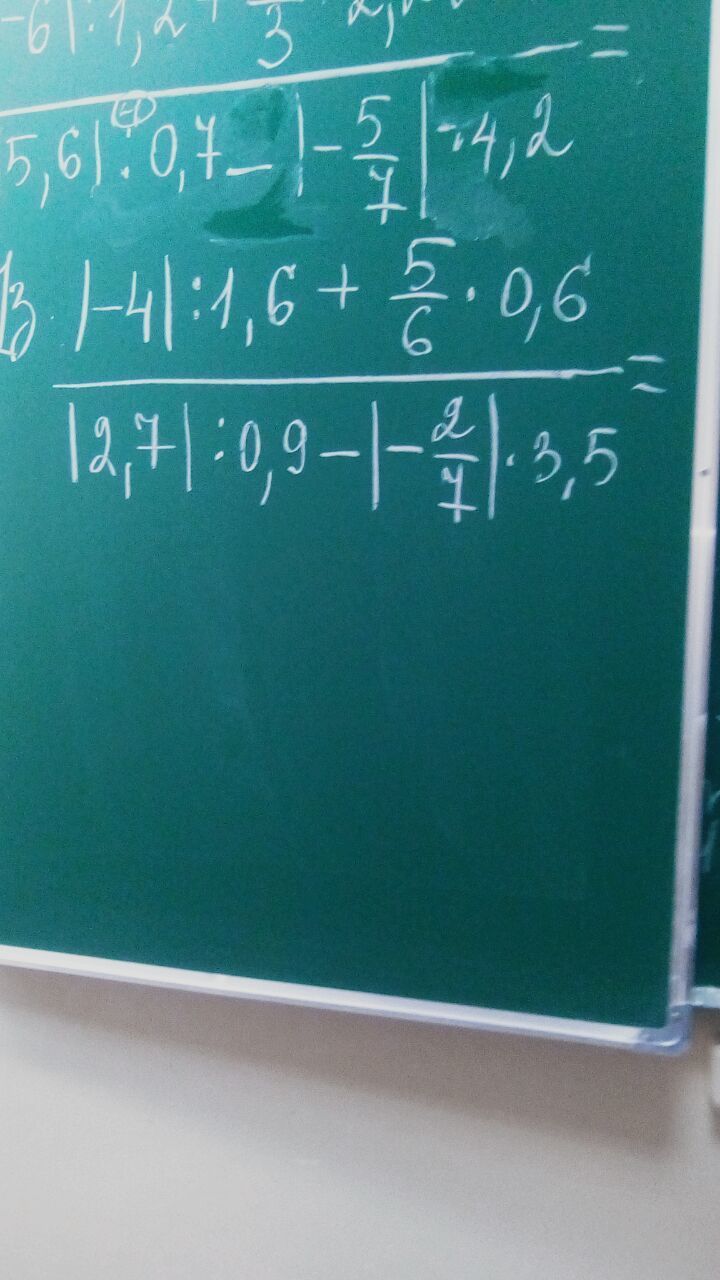 -6| : 1,2 + —/3 · 2,
=
5,6| : 0,7 - |-5/7| · 4,2
|-4| : 1,6 + 5/6 · 0,6
=
|2,7| : 0,9 - |-2/7| · 3,5